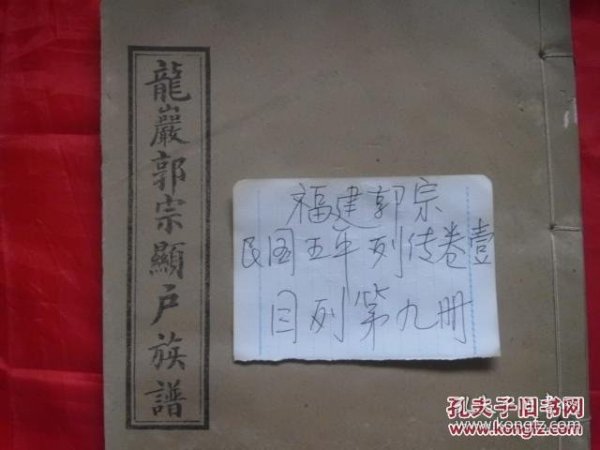 龍巖郭宗顯户族譜
福建郭宗
民国五年列传卷壹
目列第九册
孔夫子旧书网
www.kongfz.com